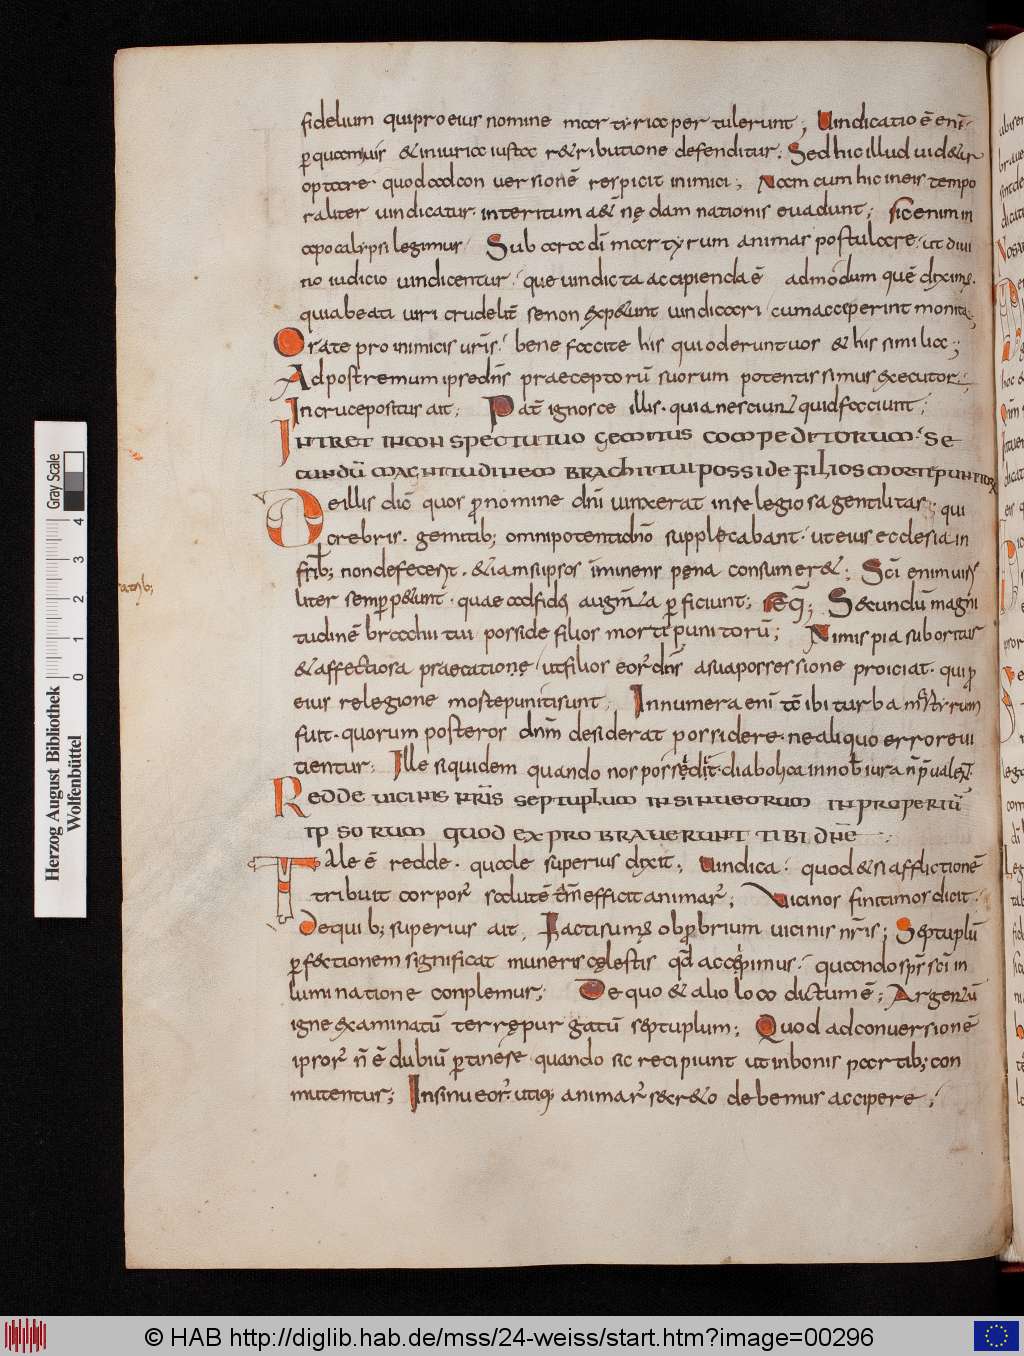 fidelium quipro eius nomine martyria pertulerunt; Uindicatio ē enī
ꝑquamuis & iniuria iusta r&ributione defenditur; Sed hic illud uid&ur
optare quod ad conuersionē respicit inimici; Nam cum hic in eis tempo
raliter uindicatur. interitum a&ernę damnationis euadunt; sic enim in
apocalypsi legimus. Sub ara dī martyrum animas postulare. ut diui
no iudicio uindicentur. que uindicta accipienda ē admodum quē diximꝰ.
quia beati uiri crudelit̄ se non expetunt uindicari cum acciperint monita;
Orate pro inimicis ur̄is; bene facite his qui oderunt uos & his similia;
Ad postremum ipse dn̄s praeceptorū suorum potentissimus executor.
In cruce positus ait; Pat̄ ignosce illis. quia nesciunt quid faciunt;
INTRET IN CONSPECTU TUO GEMITUS COMPEDITORUM. SE
CUNDŪ MAGNITUDINEM BRACHII TUI POSSIDE FILIOS MORTE PUNITOR
De illis dic̄ quos ꝓ nomine dn̄i uinxerat inreligiosa gentilitas; qui
crebris. gemitib; omnipotenti dn̄o supplecabant. ut eius ecclesia in
frīb; non defecess̄&. & iam sup̱sos īminens pena consumer&; Sc̄i enim uisi
liter semꝑ p&unt. quae ad fidei augm̄ta ꝑficiunt; seq̄; Secundū magni
tudinē brachii tui posside filios morte punitorū; Nimis pia suboritur
& affectiosa praecatione. ut filios eoꝝ dn̄s a sua possessione proiciat. qui ꝓ
eius relegione morte puniti sunt. Innumera enī tc̄ ibi turba martyrum
fuit. quorum posteros dnm̄ desiderat possidere. ne aliquo errore ui
tientur. Ille siquidem quando nos possederit. diabolica in nob̄ iura n̄ p̄ual&.
REDDE UICINIS NR̄IS SEPTUPLUM IN SINU EORUM INPROPERIŪ
IPSORUM QUOD EXPROBRAUERUNT TIBI DN̄E
Tale ē redde. quale superius dixit; uindica. quod & si afflictionē
tribuit corpoꝝ salutē tm̄ efficit animaꝝ; Uicinos finitimos dicit.
De quib; superius ait. Facti sumꝰ obꝓbrium uicinis nr̄is; Septuplū
ꝑfectionem significat muneris cęlestis qd̄ accepimus. quando sps̄ sc̄i in
luminatione conplemur; De quo & alio loco dictum ē; Argentū
igne examinatū terrę purgatū septuplum; Quod ad conuersionē
ipsoꝝ n̄ ē dubiū ꝑtinere quando sic recipiunt ut in bonis partib; con
mutentur; In sinu eoꝝ. utiq; animaꝝ secr&o debemus accipere;
ratib;
Herzog August Bibliothek
Wolfenbüttel
Gray Scale
0 1 2 3 4
© HAB http://diglib.hab.de/mss/24-weiss/start.htm?image=00296